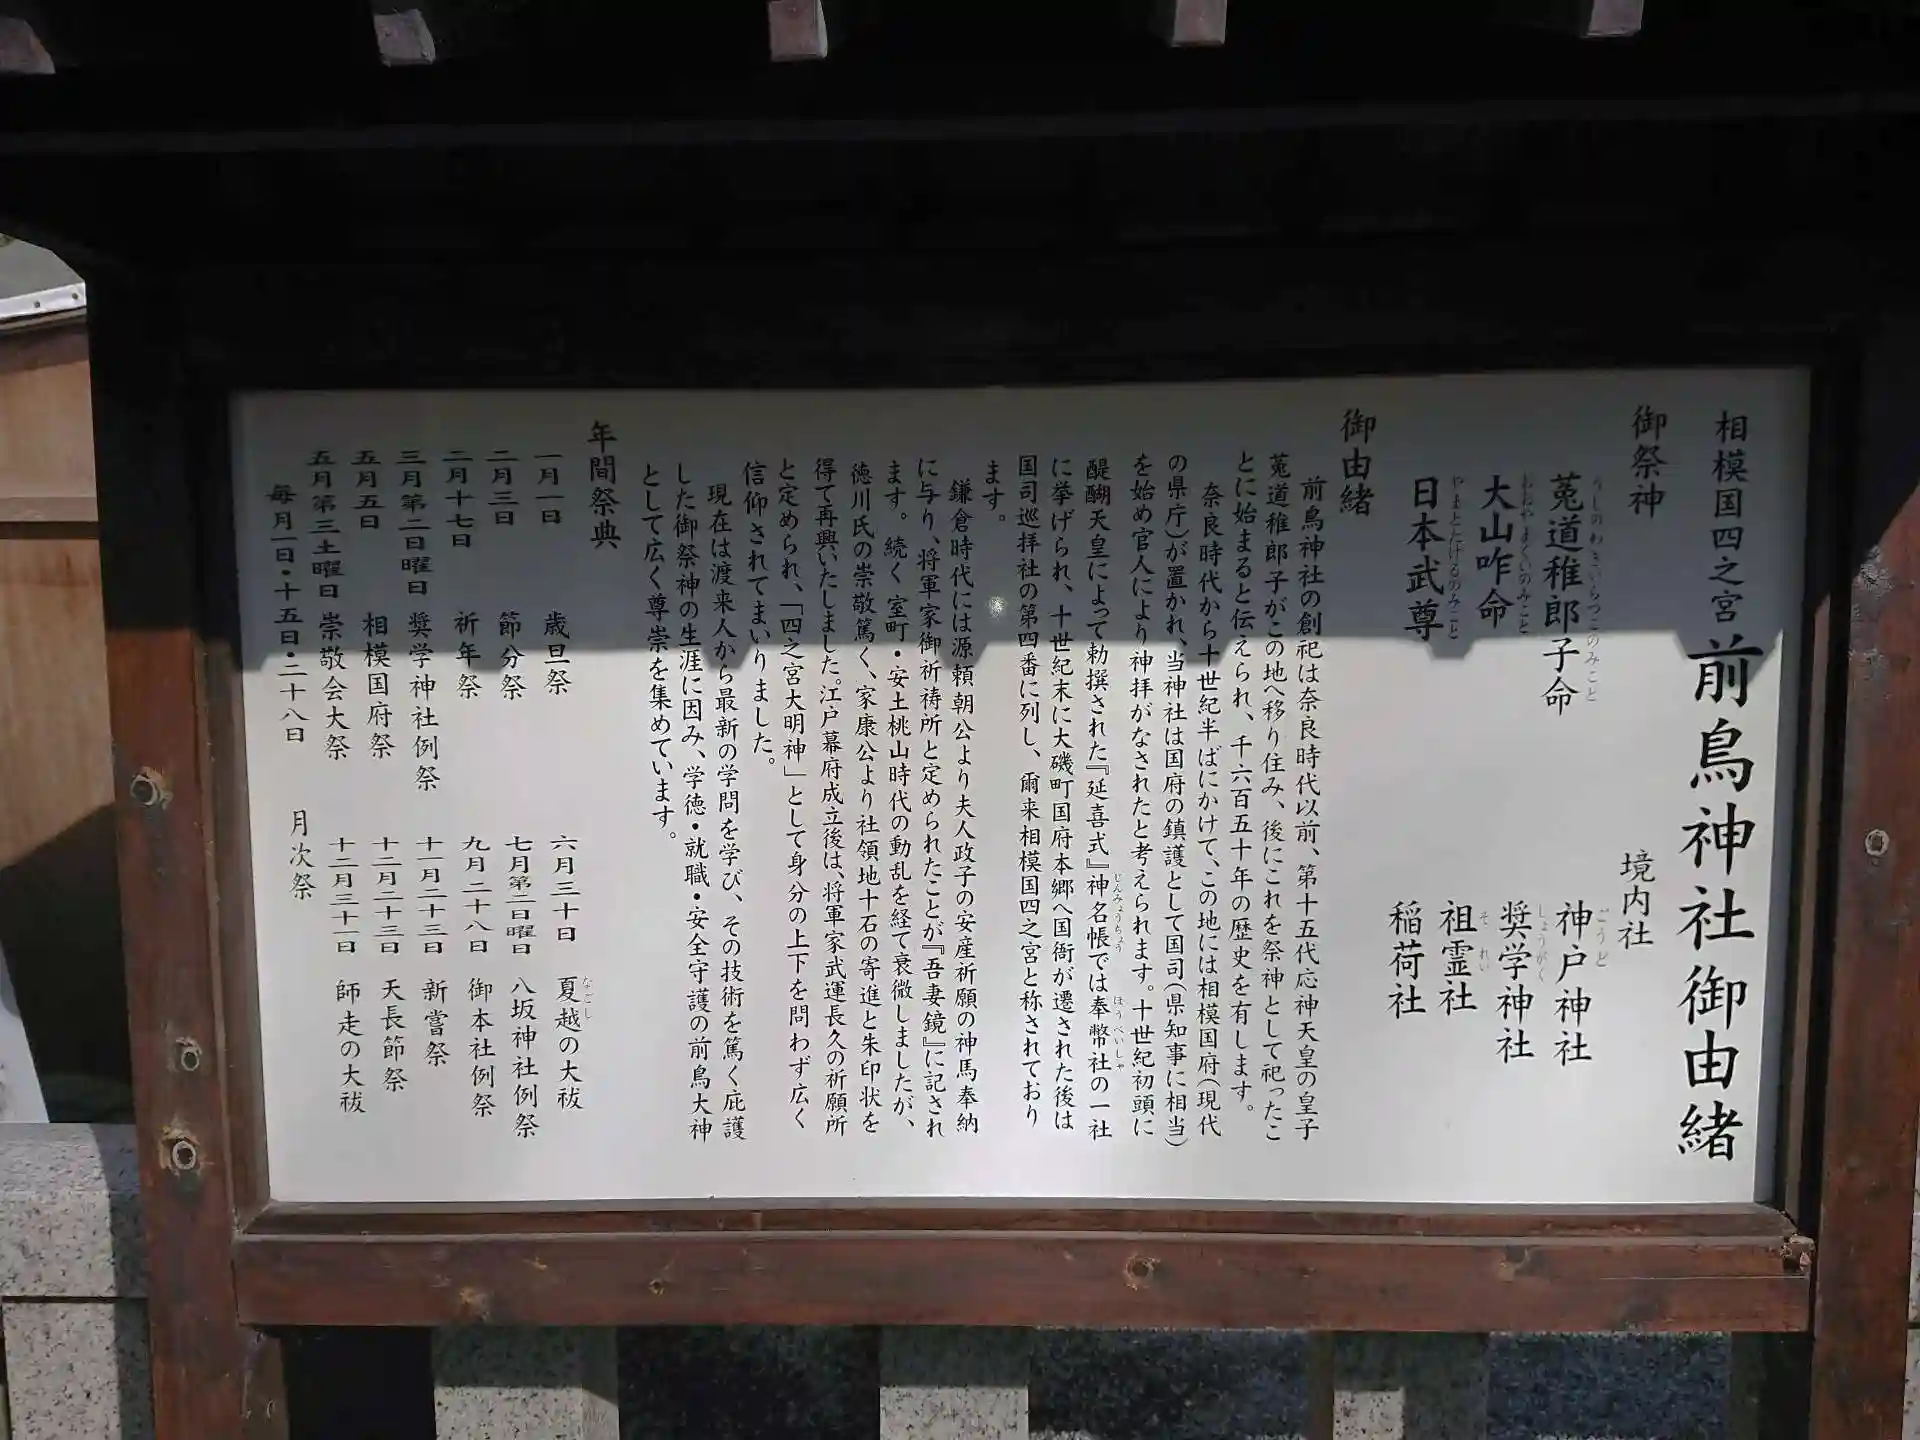 相模国四之宮 前鳥神社御由緒
御祭神
菟道稚郎子命
うじのわきいらつこのみこと
大山咋命
おおやまくいのみこと
日本武尊
やまとたけるのみこと
境内社
神戸神社
ごうど
奨学神社
しょうがく
祖霊社
それい
稲荷社
御由緒
前鳥神社の創祀は奈良時代以前、第十五代応神天皇の皇子
菟道稚郎子がこの地へ移り住み、後にこれを祭神として祀ったこ
とに始まると伝えられ、千六百五十年の歴史を有します。
奈良時代から十世紀半ばにかけて、この地には相模国府（現代
の県庁）が置かれ、当神社は国府の鎮護として国司（県知事に相当）
を始め官人により神拝がなされたと考えられます。十世紀初頭に
醍醐天皇によって勅撰された『延喜式』神名帳では奉幣社の一社
じんみょうちょう ほうべいしゃ
に挙げられ、十世紀末に大磯町国府本郷へ国衙が遷された後は
国司巡拝社の第四番に列し、爾来相模国四之宮と称されており
ます。
鎌倉時代には源頼朝公より夫人政子の安産祈願の神馬奉納
に与り、将軍家御祈祷所と定められたことが『吾妻鏡』に記され
ます。続く室町・安土桃山時代の動乱を経て衰微しましたが、
徳川氏の崇敬篤く、家康公より社領地十石の寄進と朱印状を
得て再興いたしました。江戸幕府成立後は、将軍家武運長久の祈願所
と定められ、「四之宮大明神」として身分の上下を問わず広く
信仰されてまいりました。
現在は渡来人から最新の学問を学び、その技術を篤く庇護
した御祭神の生涯に因み、学徳・就職・安全守護の前鳥大神
として広く尊崇を集めています。
年間祭典
一月一日 歳旦祭
二月三日 節分祭
二月十七日 祈年祭
三月第二日曜日 奨学神社例祭
五月五日 相模国府祭
五月第三土曜日 崇敬会大祭
六月三十日 夏越の大祓
なごし
七月第二日曜日 八坂神社例祭
九月二十八日 御本社例祭
十一月二十三日 新嘗祭
十二月二十三日 天長節祭
十二月三十一日 師走の大祓
毎月一日・十五日・二十八日 月次祭